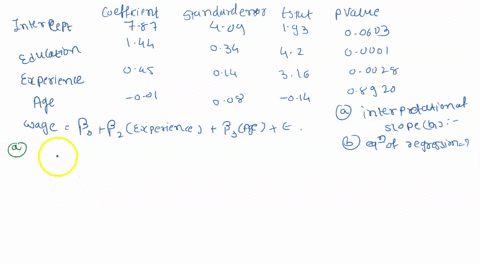 coefficient standard error tstat pvalue
Intercept 7.87 4.09 1.93 0.0603
Education 1.44 0.34 4.2 0.0001
Experience 0.45 0.14 3.16 0.0028
Age -0.01 0.08 -0.14 0.8920
wage = β₀ + β₂(Experience) + β₃(Age) + ε.
(a) interpretational slope(b₁) :-
(b) eqⁿ of regression=?
(a)